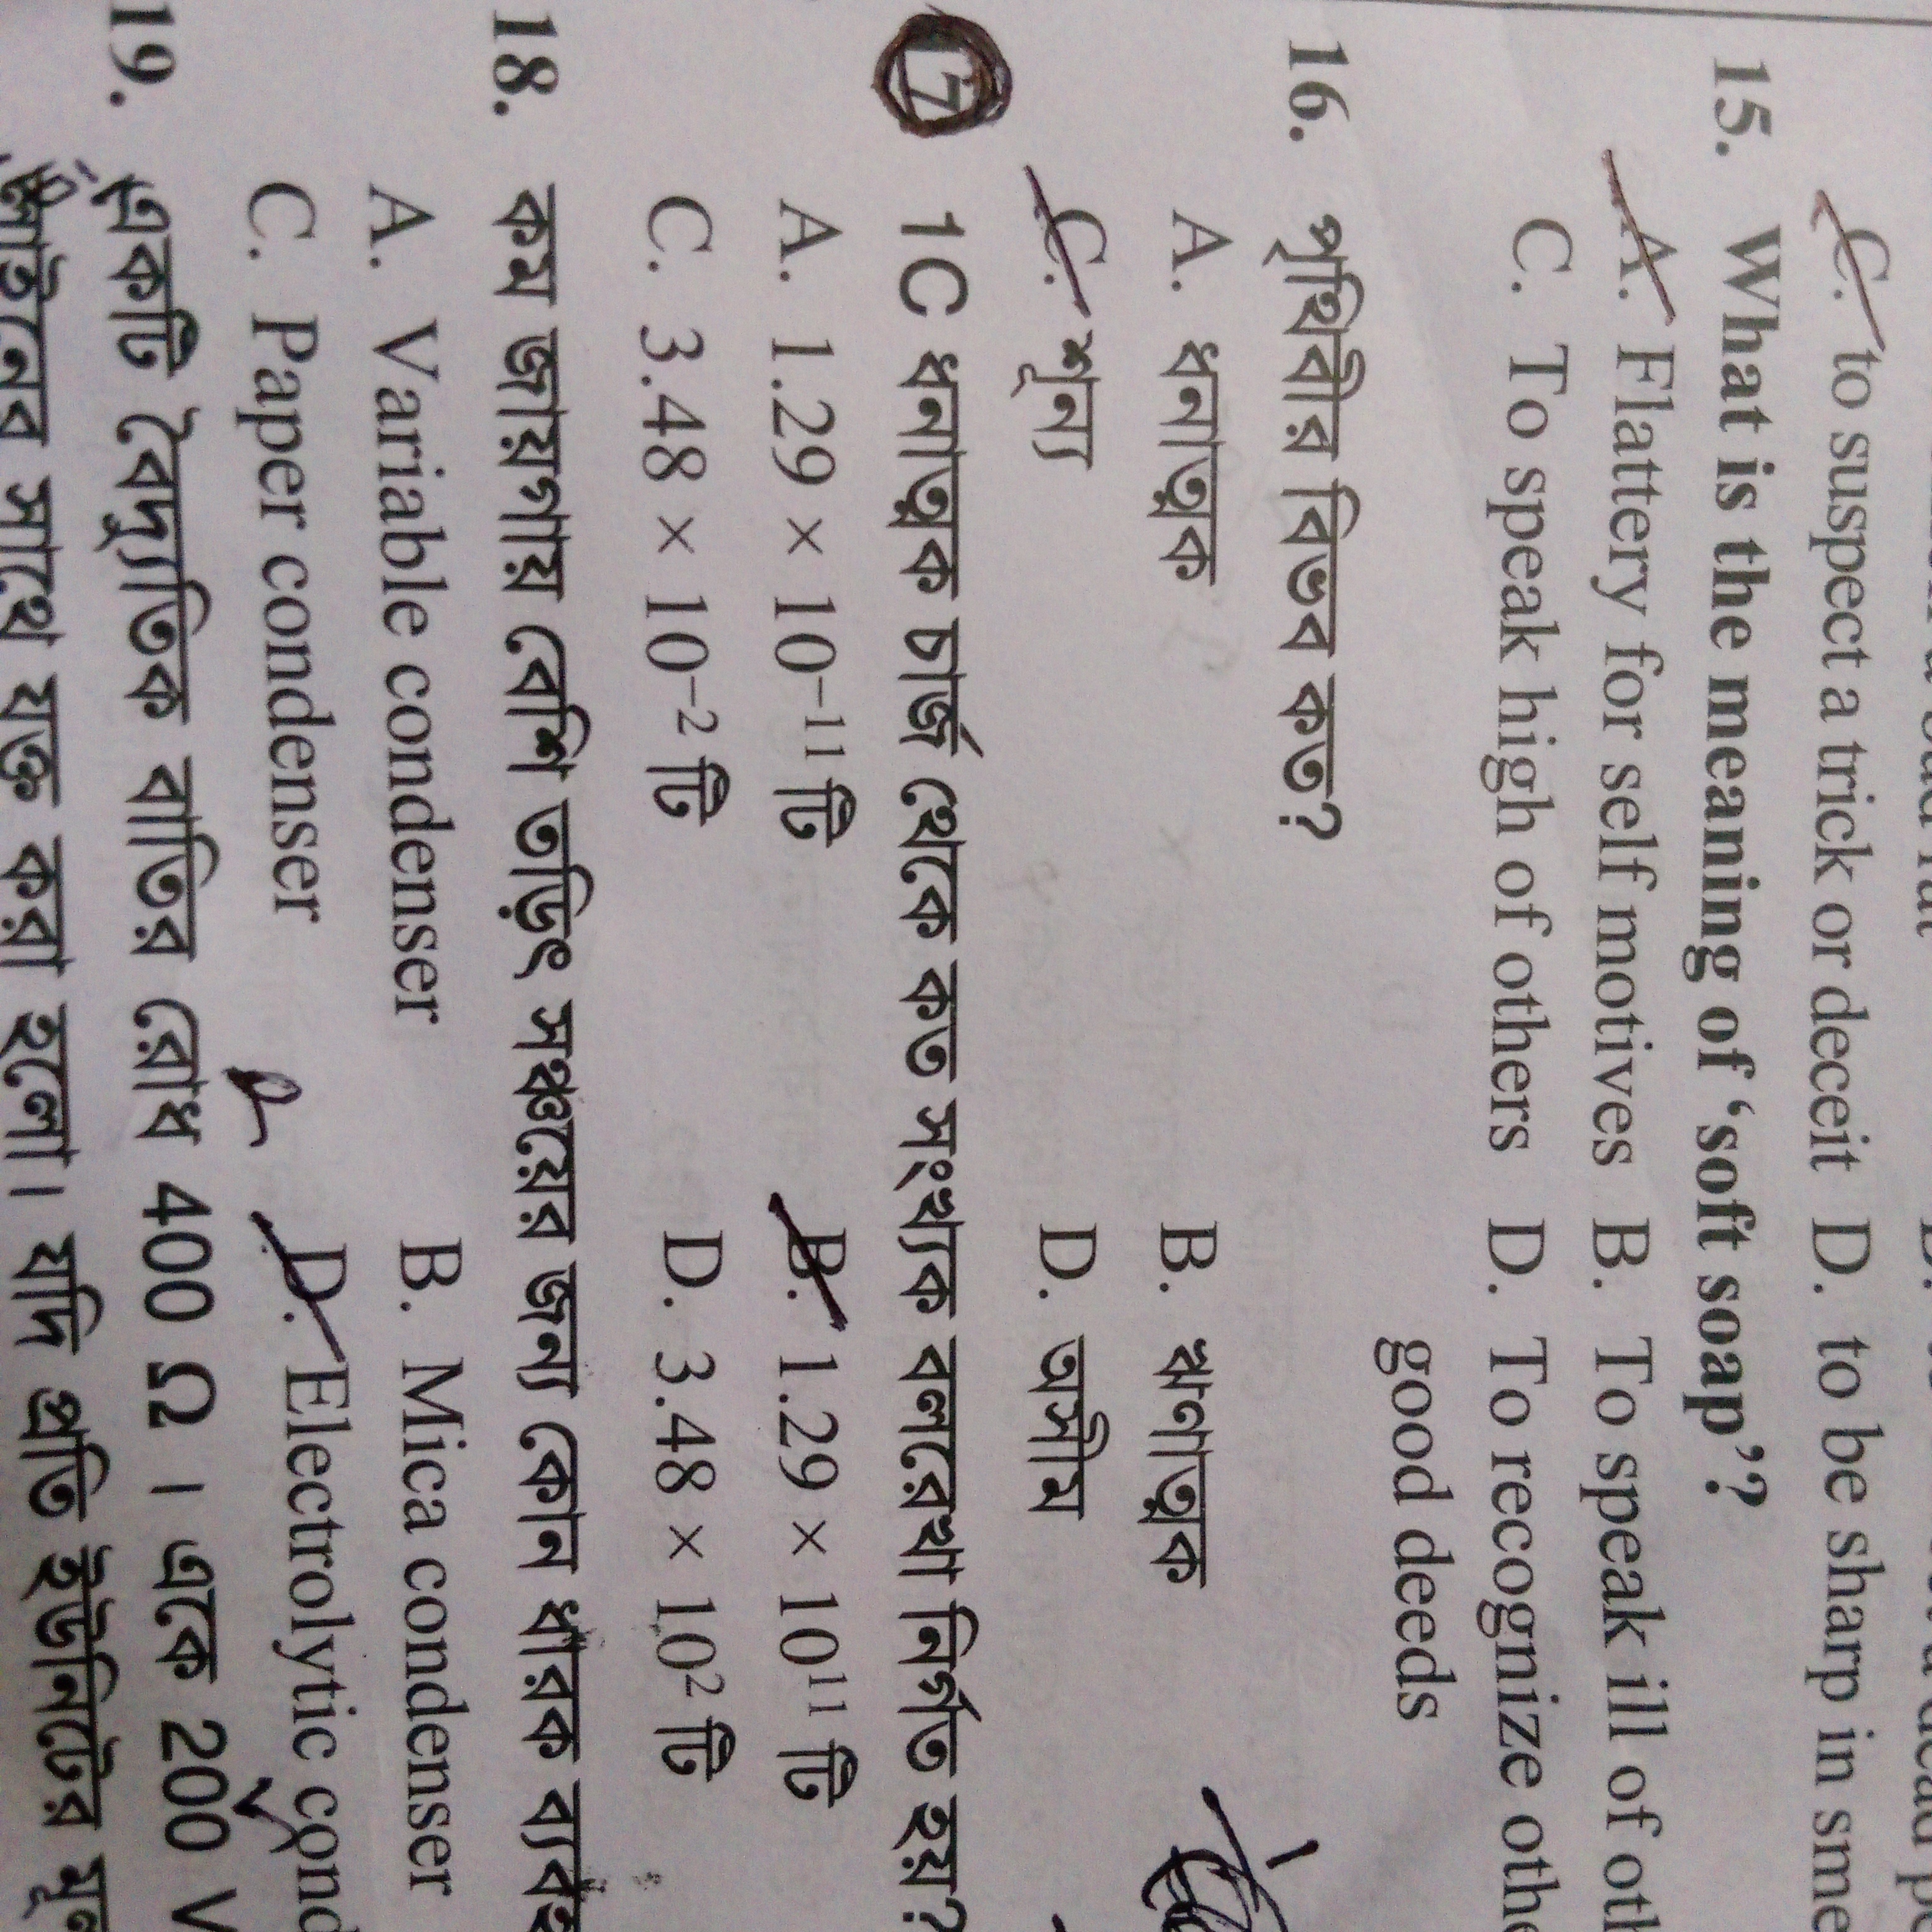 C. to suspect a trick or deceit D. to be sharp in
15. What is the meaning of ‘soft soap’?
A. Flattery for self motives B. To speak ill of
C. To speak high of others D. To recognize
good deeds
16. পৃথিবীর বিভব কত?
A. ধনাত্মক B. ঋণাত্মক
C. শূন্য D. অসীম
17 1C ধনাত্মক চার্জ থেকে কত সংখ্যক বলরেখা নির্গত হয়?
A. 1.29 × 10⁻¹¹ টি B. 1.29 × 10¹¹ টি
C. 3.48 × 10⁻² টি D. 3.48 × 10² টি
18. কম জায়গায় বেশি তড়িৎ সঞ্চয়ের জন্য কোন ধারক
A. Variable condenser B. Mica condenser
C. Paper condenser D. Electrolytic
19. একটি বৈদ্যুতিক বাতির রোধ 400 Ω । একে 200 V
সাথে যুক্ত করা হলো। যদি প্রতি ইউনিটের